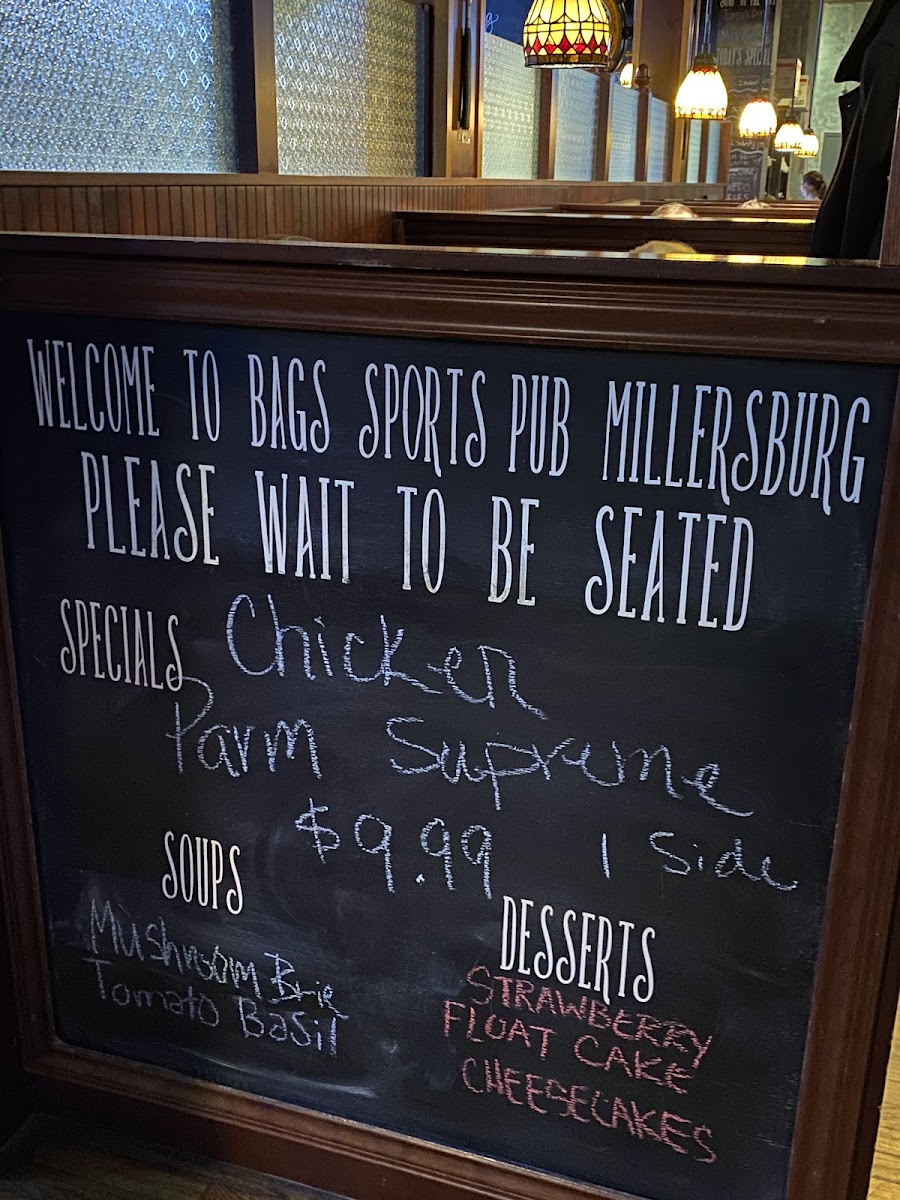 WELCOME TO BAGS SPORTS PUB MILLERSBURG
PLEASE WAIT TO BE SEATED
SPECIALS Chicken
Parm Supreme
$9.99 1 Side
SOUPS
Mushroom Brie
Tomato Basil
DESSERTS
STRAWBERRY
FLOAT CAKE
CHEESECAKES